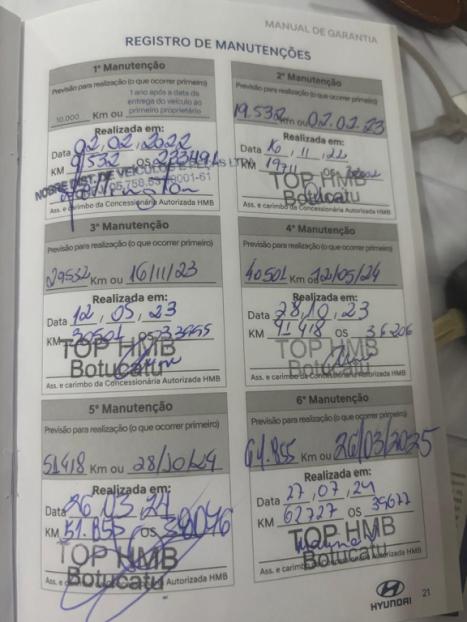 MANUAL DE GARANTIA
REGISTRO DE MANUTENÇÕES
1ª Manutenção
Previsão para realização (o que ocorrer primeiro)
10.000 Km ou 1 ano após a data da entrega do veículo ao primeiro proprietário
Realizada em:
Data 02, 02, 2022
KM 9532 OS
NOBRE DIST. DE VEICULOS E PEÇAS LTDA
Ass. e carimbo da Concessionária Autorizada HMB
2ª Manutenção
Previsão para realização (o que ocorrer primeiro)
19.532 Km ou 02.02.23
Realizada em:
Data 16, 11, 22
KM OS
TOP HMB
Botucatu
Ass. e carimbo da Concessionária Autorizada HMB
3ª Manutenção
Previsão para realização (o que ocorrer primeiro)
29532 Km ou 16/11/23
Realizada em:
Data 12, 05, 23
KM 30501 OS
TOP HMB
Botucatu
Ass. e carimbo da Concessionária Autorizada HMB
4ª Manutenção
Previsão para realização (o que ocorrer primeiro)
40501 Km ou 12/05/24
Realizada em:
Data 28, 10, 23
KM 41418 OS 36206
TOP HMB
Botucatu
Ass. e carimbo da Concessionária Autorizada HMB
5ª Manutenção
Previsão para realização (o que ocorrer primeiro)
51418 Km ou 28/10/24
Realizada em:
Data 26, 03, 24
KM 51.855 OS 38046
TOP HMB
Botucatu
Ass. e carimbo da Concessionária Autorizada HMB
6ª Manutenção
Previsão para realização (o que ocorrer primeiro)
61.855 Km ou 26/03/2025
Realizada em:
Data 27, 07, 24
KM 62727 OS 39677
TOP HMB
Botucatu
Ass. e carimbo da Concessionária Autorizada HMB
HYUNDAI 21